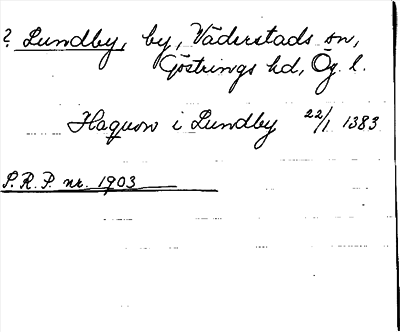 ? Lundby, by, Väderstads sn,
Göstrings hd, Ög. l.
Haquon i Lundby 22/1 1383
S.R.P. nr. 1903